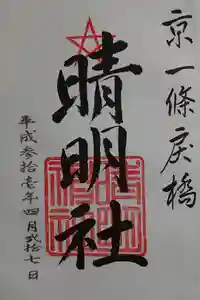 京一條戻橋
晴明社
平成参拾壱年四月弐拾七日